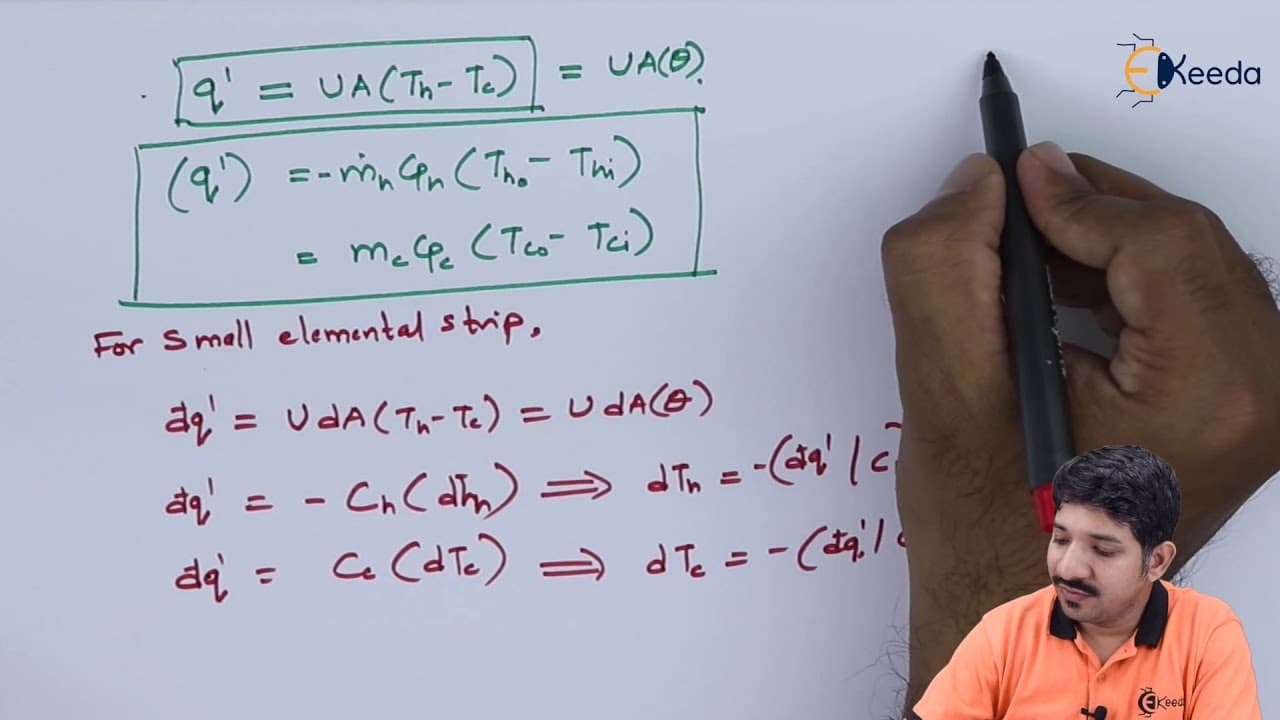 q' = UA(Th - Tc) = UA(θ).
(q') = -ṁh Cph (Tho - Thi)
= mc Cpc (Tco - Tci)
For small elemental strip,
dq' = U dA (Th - Tc) = U dA(θ)
dq' = - Ch (dTh) ⟹ dTh = -(dq' / C
dq' = Cc (dTc) ⟹ dTc = -(dq' /
EKeeda
EKeeda